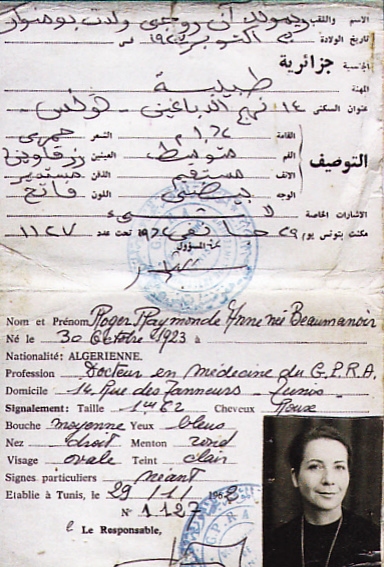 الاسم واللقب ريمونك آن روجي ولدت بومنوار
تاريخ الولادة 30 اكتوبر 1923 في
الجنسية جزائرية
المهنة طبيبة
عنوان السكنى 14 نهج الدباغين - تونس
التوصيف
القامة 1,62م الشعر
الفم متوسط العينين
الانف مستقيم الذقن مستدير
الوجه بيضي اللون فاتح
الاشارات الخاصة لا شيء
بتونس يوم 29 جانفي 1962 تحت عدد 1127
المسؤول
Nom et Prénom Roger Raymonde Anne née Beaumanoir
Né le 30 Octobre 1923 à
Nationalité: ALGERIENNE.
Profession Docteur en Médecine du G.P.R.A.
Domicile 14 Rue des Tanneurs - Tunis
Signalement: Taille 1m62 Cheveux Roux
Bouche moyenne Yeux bleus
Nez droit Menton rond
Visage ovale Teint clair
Signes particuliers néant
Etablie à Tunis, le 29/1/1962
N° 1127
Le Responsable,
G.P.R.A